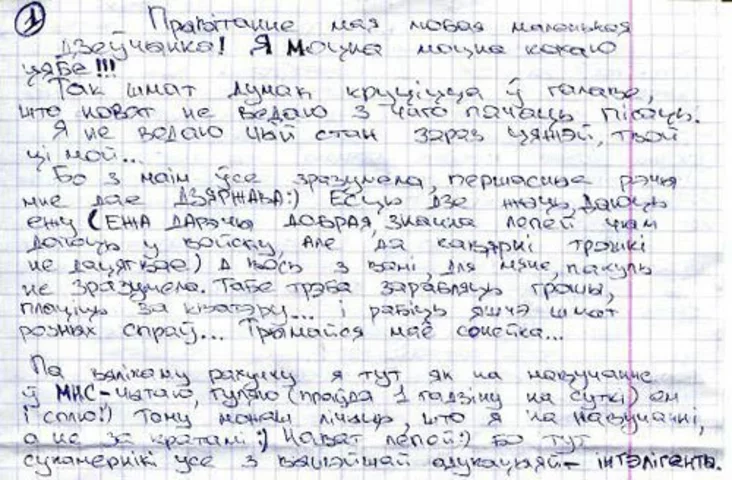 1
Прывітанне мая новая маленькая
дзеўчынка! Я моцна моцна кахаю
цябе!!!
Так шмат думак круціцца ў галаве,
што нават не ведаю з чаго пачаць пісаць.
Я не ведаю чый стан зараз цяжэй, твой
ці мой...
Бо з маім ўсе зразумела, першасныя рэчы
мне дае ДЗЯРЖАВА:) Ёсць дзе жыць, даюць
ежу (ЕЖА ДАРЭЧЫ ДОБРАЯ, значна лепей чым
даюць у войску, Але да кавярні трошкі
не дацягвае.) А вось з вамі, для мяне, пакуль
не зразумела. Табе трэба зарабляць грошы,
плаціць за кватэру... і рабіць яшчэ шмат
розных спраў... Трымайся маё сонейка...
Па вялікаму рахунку я тут як на навучанне
ў МНС-чытаю, гуляю (праўда 1 гадзіну на суткі) ем
і сплю:) Таму можаш лічыць, што я на навучанні,
а не за кратамі:) Нават лепей:) Бо тут
сукамернікі усе з вышэйшай адукацыяй- інтэлігенты.